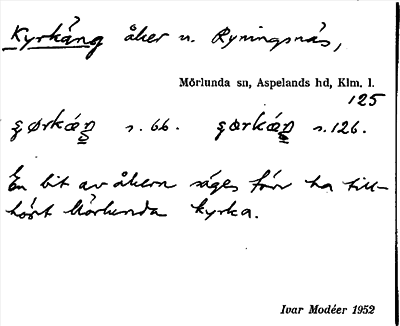 Kyrkäng åker n. Ryningsnäs,
Mörlunda sn, Aspelands hd, Klm. l.
125
s. 66. s. 126.
En bit av åkern säges förr ha till-
hört Mörlunda kyrka.
Ivar Modéer 1952